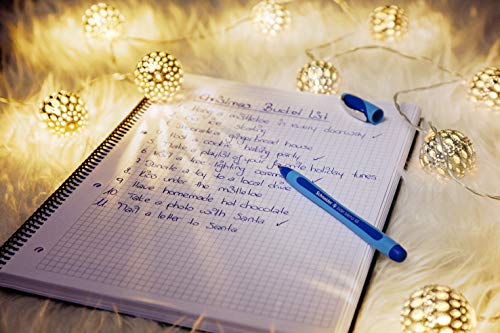 Christmas Bucket List
a mistletoe in every doorway ✓
skating
a gingerbread house
a cookie baking party ✓
playlist of your favorite holiday tunes
6. a tree lighting ceremony
7. Donate a toy to a local drive
8. Kiss under the mistletoe
9. Have homemade hot chocolate
10. Take a photo with Santa ✓
11. Mail a letter to Santa
Schneider